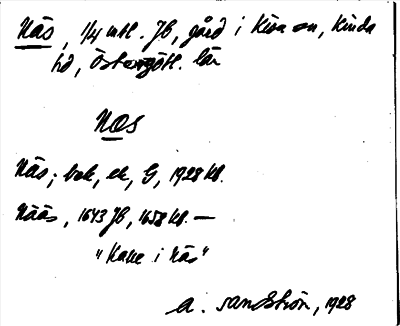 Näs, 1/4 mtl. JB, gård i Kisa sn, Kinda
hd, Östergötl. län
NÆS
Näs; bok, ek, G, 1928 kl.
Nääs, 1643 JB, 1658 kl. —
"Kalle i Näs"
A. Sandström, 1928